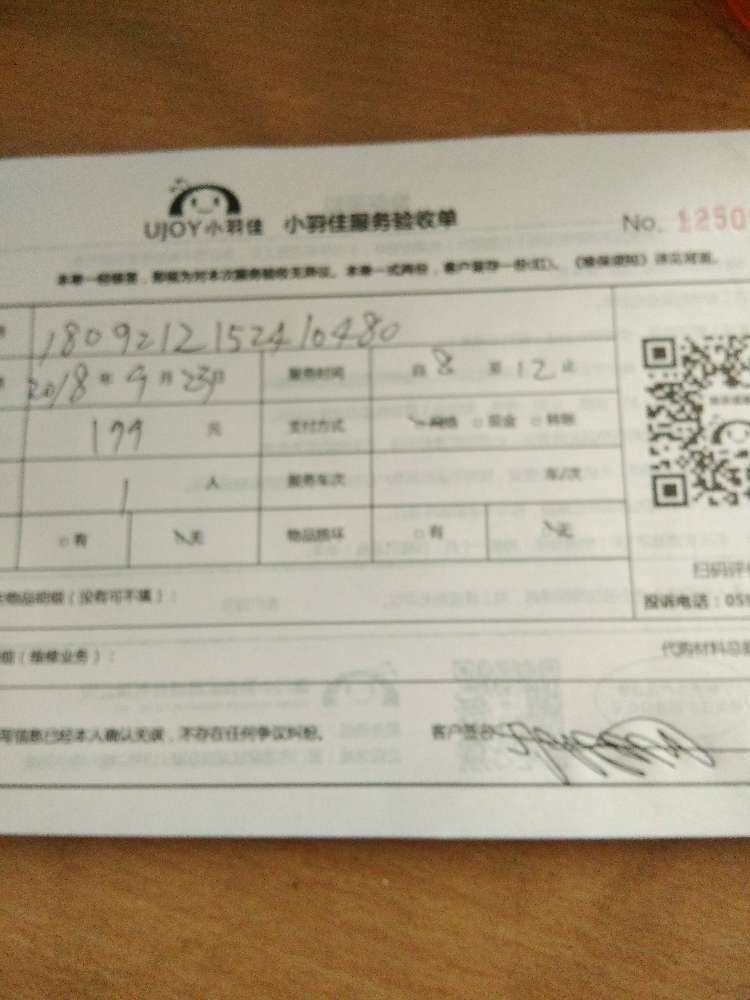 UJOY小羽佳 小羽佳服务验收单 No. 1250
本单一经签署，即视为对本次服务验收无异议。本单一式两份，客户留存一份(红)。《维保须知》详见对面。
180921215241048O
2018年9月23日 服务时间 自8至12止
199元 支付方式 网络 现金 转账
1人 服务车次 车/次
有 无 物品损坏 有 无
物品明细（没有可不填）：
扫码评价
投诉电话：059
（维修业务）：
代购材料总
写信息已经本人确认无误，不存在任何争议纠纷。 客户签名